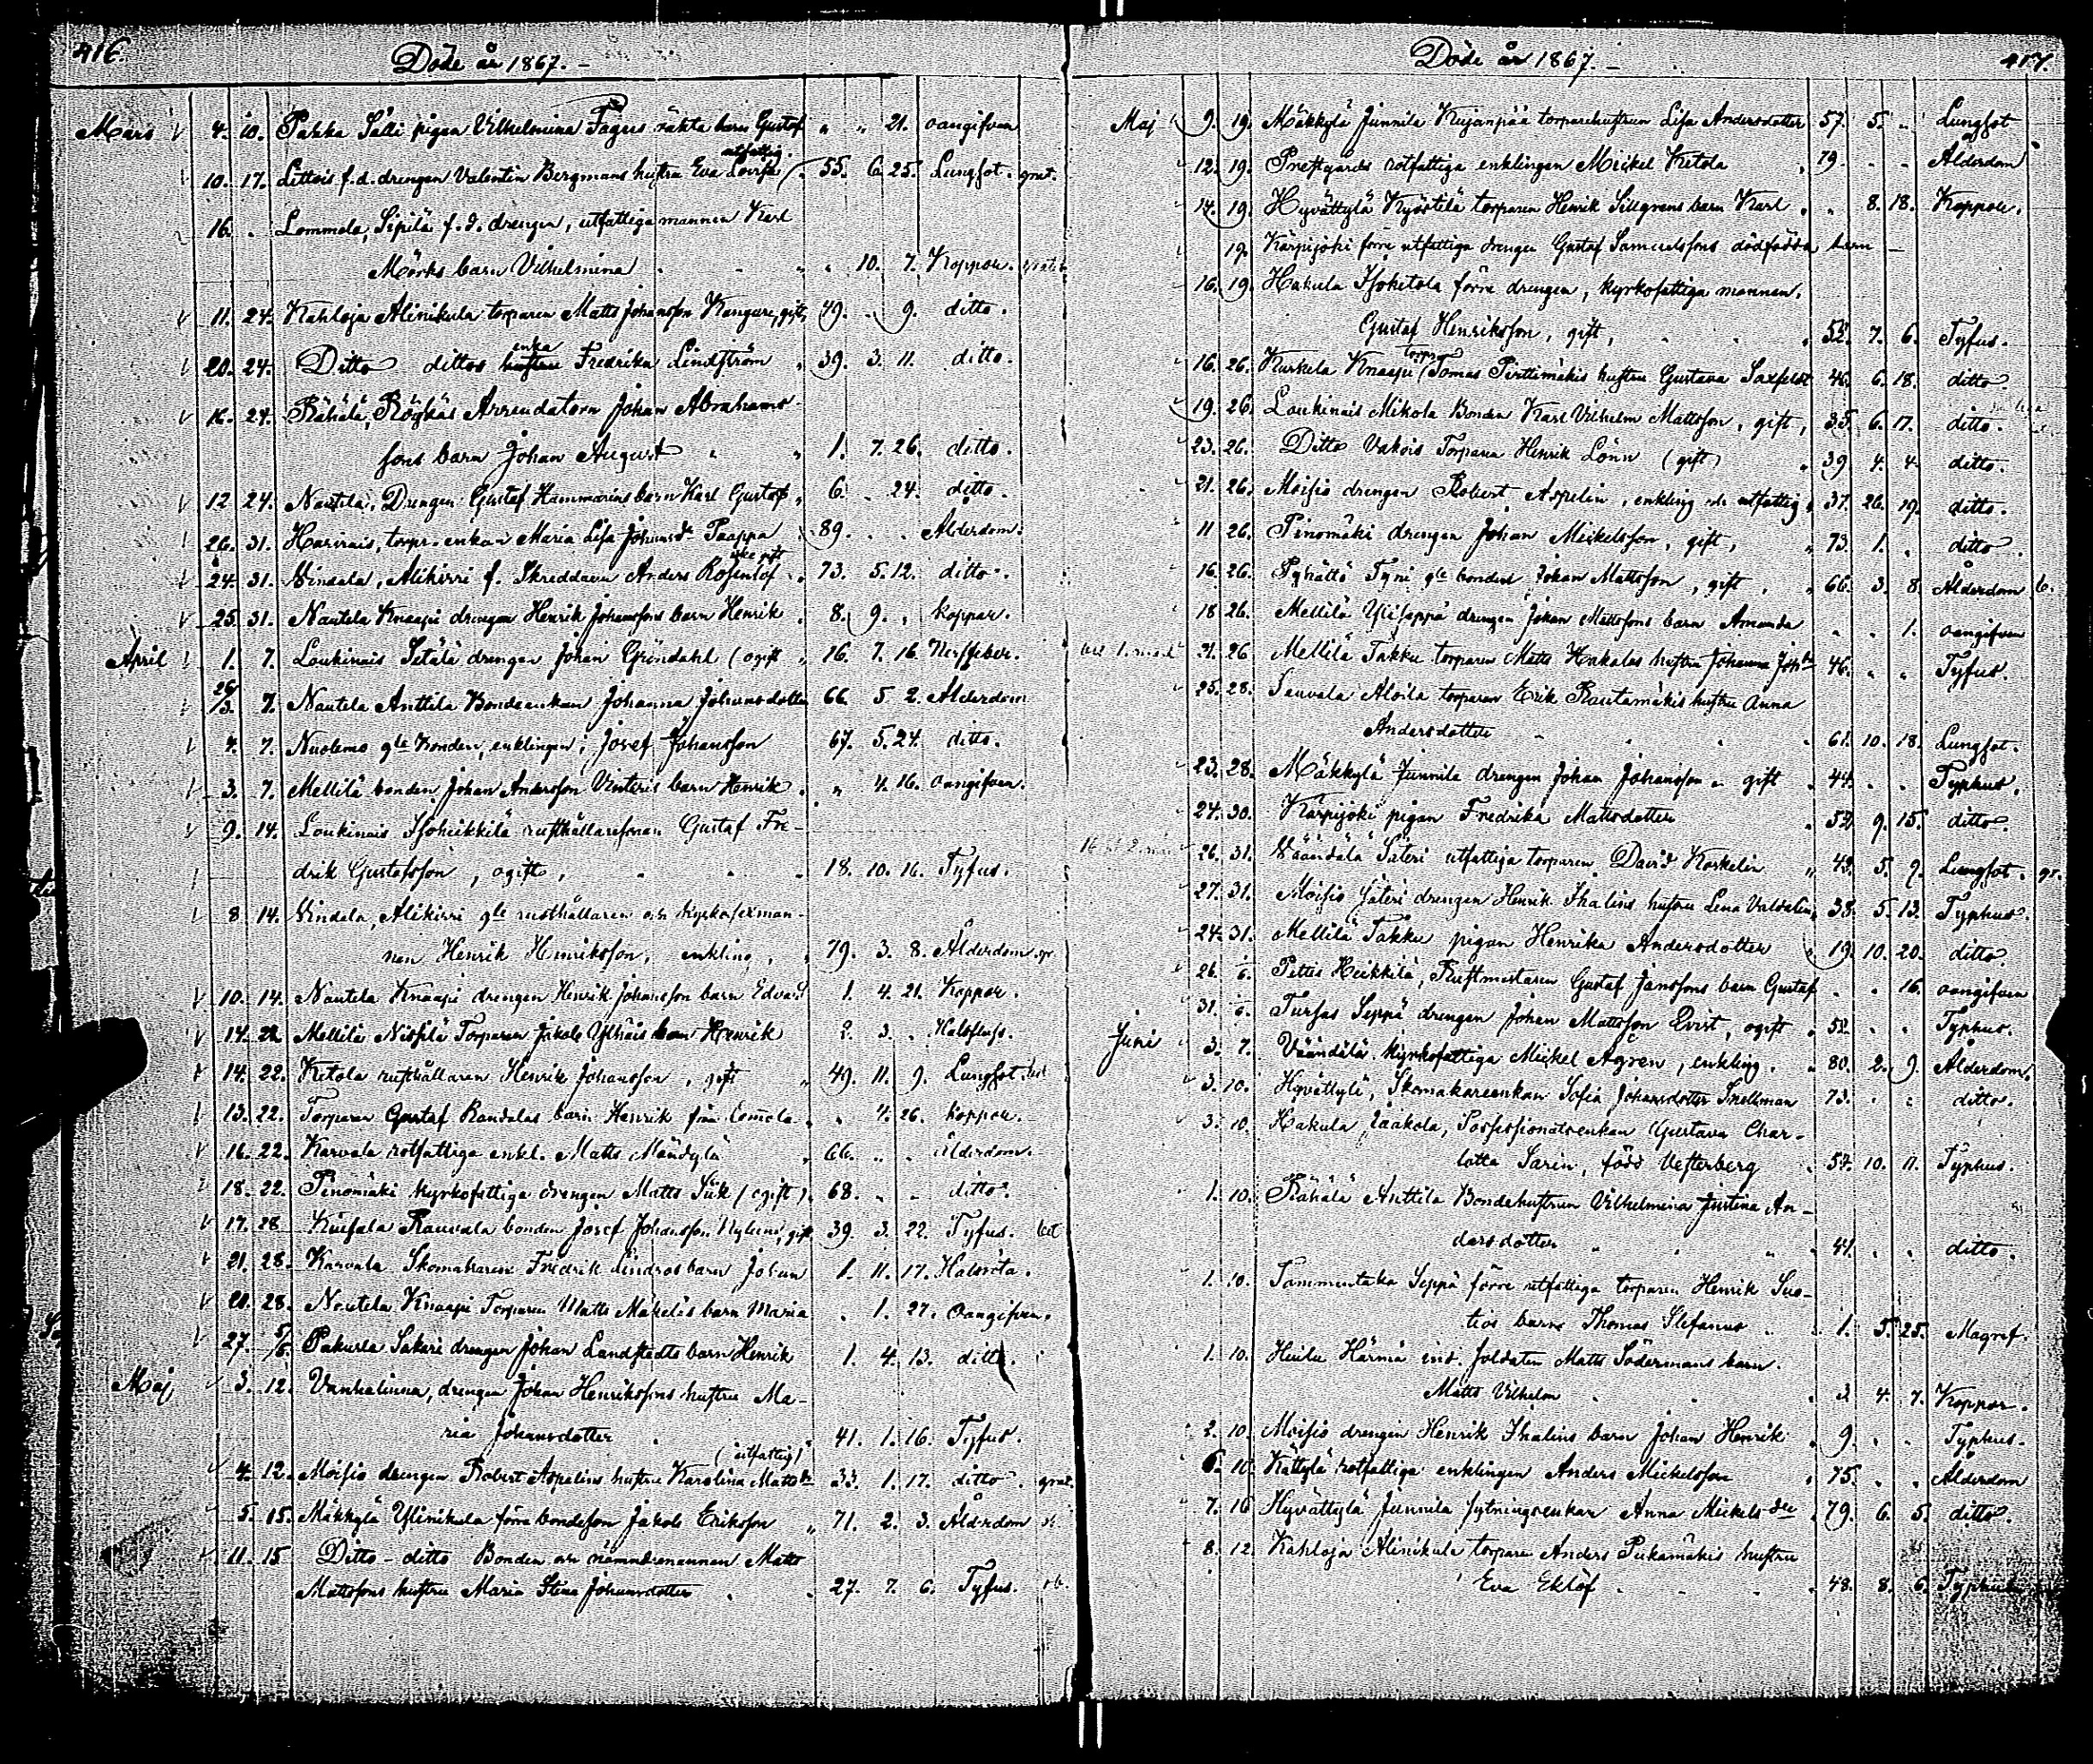 416.
Döde år 1867.
Mars 4. 10. Pakka Sälli pigan Vilhelmina Fagers oäkta barn Gustaf " " 21. oangifven
utfattig.
10. 17. Lettois f.d. drengen Valentin Bergmans hustru Eva Lovisa 55. 6. 25. Lungsot. grat.
16. " Lommola, Sipilä f.d. drengen, utfattiga mannen Karl
Mörks barn Vilhelmina " 10. 7. Koppor. gratis
11. 24. Kahloja Alinikula torparen Matts Johansson Kangure, gift, 49. " 9. ditto.
enka
20. 24. Ditto dittos hustru Fredrika Lindström 39. 3. 11. ditto.
16. 24. Rähälä, Röykäs Arrendatorn Johan Abrahams-
sons barn Johan August 1. 7. 26. ditto.
12 24. Nautela, Drengen Gustaf Hammarins barn Karl Gustaf 6. " 24. ditto.
26. 31. Harvais, torpr. enkan Maria Lisa Johansdr Paappa 89. " " Ålderdom.
icke gift
24. 31. Vindala, Alikirri f. Skreddaren Anders Rosenlöf 73. 5. 12. ditto.
25. 31. Nautela Knaapi drengen Henrik Johanssons barn Henrik 8. 9. " koppor.
April 1. 7. Loukinais Setälä drengen Johan Gröndahl (ogift 16. 7. 16. Nerffeber.
26/3. 7. Nautela Anttila Bondeenkan Johanna Johansdotter 66 5 2. Ålderdom
4. 7. Nuolemo gle bonden, enklingen, Josef Johansson 67. 5. 24. ditto.
3. 7. Mellilä bonden Johan Andersson Vinteris barn Henrik " 4. 16. oangifven.
9. 14. Loukinais Isoheikkilä rusthållaresonen Gustaf Fre-
drik Gustafsson, ogift, 18. 10. 16. Tyfus.
8. 14. Vindala, Alikirri gle rusthållaren och kyrkosexman-
nen Henrik Henriksson, enkling, 79. 3. 8. Ålderdom
10. 14. Nautela Knaapi drengen Henrik Johansson barn Edvard 1. 4. 21. Koppor.
14. 22 Mellilä Torparen Jakob barn Henrik 2. 3. " Halsfluss.
14. 22. Ketola rusthållaren Henrik Johansson, gift 49. 11. 9. Lungsot.
13. 22. Torparen Gustaf Randalas barn Henrik från Lommola " 4. 26. koppor.
16. 22. Karvala rotfattiga enkl. Matts Mändylä 66. " " ålderdom.
18. 22. Pinomäki kyrkofattige drengen Matts Siik (ogift) 68. " " ditto.
17. 28 Kuifala Rauvala bonden Josef Johansson Nylund, gift 39. 3. 22. Tyfus.
21. 28. Karvala Skomakaren Fredrik Lindros barn Johan 1. 11. 17. Halsröta.
20. 28. Nautela Knaapi Torparen Matts Mäkeläs barn Maria " 1. 27. Oangifven.
27. 5/6. Pakurla Sakari drengen Johan Landstedts barn Henrik 1. 4. 13. ditto.
Maj 3. 12. Vanhalinna, drengen Johan Henrikssons hustru Ma-
ria Johansdotter 41. 1. 16. Tyfus.
(utfattig)
4. 12. Moisio drengen Robert Aspelins hustru Karolina Mattsdr 33. 1. 17. ditto. grat.
5. 15. Mäkkylä Ylinikula förre bondeson Jakob Eriksson 71. 2. 3. Ålderdom
11. 15 Ditto - ditto Bonden och nämndemannen Matts
Mattssons hustru Maria Stina Johansdotter 27. 7. 6. Tyfus.
417.
Döde år 1867.
Maj 9. 19. Mäkkylä Junnila Kujanpää torparehustrun Lisa Andersdotter 57. 5. " Lungsot
12. 19. Prestgårds rotfattiga enklingen Mickel Ketola 79. " " Ålderdom
14. 19. Hyvättylä Kyöstilä torparen Henrik Sillgrens barn Karl " 8. 18. Koppor.
19. Kärpijoki förre utfattiga drengen Gustaf Samuelssons dödfödda barn
16. 19. Hakula Isoketola förre drengen, kyrkofattiga mannen,
Gustaf Henriksson, gift, 52. 7. 6. Tyfus.
torpr
16. 26. Kurkela Knaapi Tomas Perttimäkis hustru Gustava Saxfelt 46. 6. 18. ditto.
19. 26. Loukinais Mikola Bonden Karl Vilhelm Mattsson, gift, 35. 6. 17. ditto.
23. 26. Ditto Vakois Torparen Henrik Lönn (gift) 39 4. 4. ditto.
21. 26. Moisio drengen Robert Aspelin, enkling och utfattig 37. 26. 19. ditto.
11 26. Pinomäki drengen Johan Mickelsson, gift, 73. 1. " ditto.
16. 26. Pyhältö Tyni gle bonden Johan Mattsson, gift, 66. 3. 8. Ålderdom
18 26. Mellilä Yliseppä drengen Johan Mattssons barn Amanda " " 1. oangifven
21. 26 Mellilä Takku torparen Matts Hakalas hustru Johanna Johdr 46. " " Tyfus.
25. 28. Sauvala Aloila torparen Erik Rautamäkis hustru Anna
Andersdotter 61. 10. 18. Lungsot.
23. 28. Mäkkylä Junnila drengen Johan Johansson " gift 44. " " Typhus.
24. 30. Kärpijoki pigan Fredrika Mattsdotter 52. 9. 15. ditto.
26. 31. Väändälä Säteri utfattiga torparen David Korkelin 42. 5. 9. Lungsot. gr.
27. 31. Moisio Säteri drengen Henrik Thalins hustru Lena Valdalin 38. 5. 13. Typhus.
24. 31. Mellilä Takku pigan Henrika Andersdotter 19. 10. 20. ditto
26. 6. Pettis Heikkilä, Rustmestaren Gustaf Janssons barn Gustaf " " 16. oangifven
31. 6. Tursas Seppä drengen Johan Mattsson Qvist, ogift 52. " " Typhus.
Juni 3. 7. Väändälä kyrkofattiga Mickel Ågren, enkling. 80. 2. 9. Ålderdom.
3. 10. Hyvättylä, Skomakareenkan Sofia Johansdotter Snellman 73. " " ditto.
3. 10. Hakula Jaakola, Possessionatsenkan Gustava Char-
lotta Sarin, född Vesterberg 57. 10. 11. Typhus.
1. 10. Rähälä Anttila Bondehustrun Vilhelmina Justina An-
dersdotter 41. " " ditto.
1. 10. Tammentaka Seppä förre utfattiga torparen Henrik Suo-
tios barn Thomas Stefanus 1. 5. 25. Magref.
1. 10. Huilu Härmä ind. soldaten Matts Södermans barn.
Matts Vilhelm 2 4. 7. Koppor.
2. 10. Moisio drengen Henrik Thalins barn Johan Henrik 9. " " Typhus.
6. 10. Kättylä rotfattiga enklingen Anders Mickelsson 75. " " Ålderdom
7. 16 Hyvättylä Junnila sytningsenkan Anna Mickelsdtr 79. 6. 5. ditto.
8. 12. Kahloja Alinikula torparen Anders Pukamäkis hustru
Eva Eklöf 48. 8. 6. Typhus